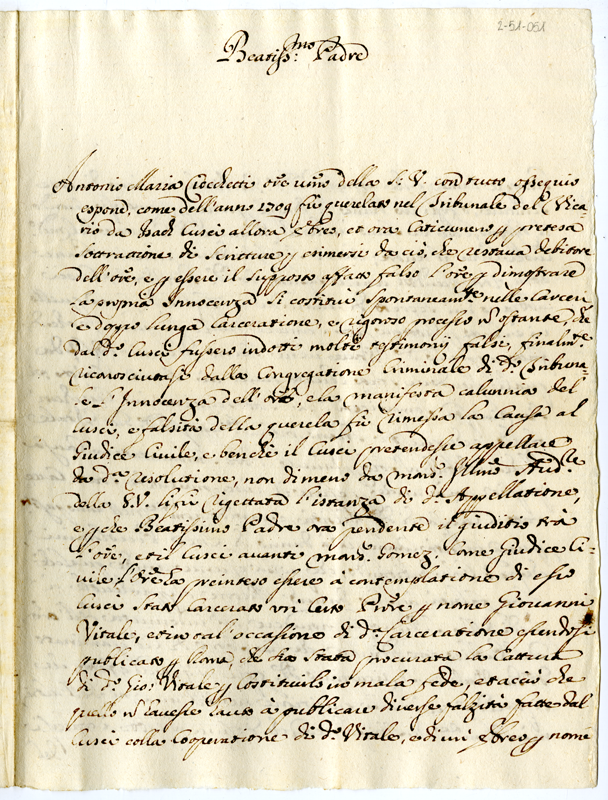 2-51-051
Beatiss:mo Padre
Antonio Maria Ciocchetti ore umo della S: V. con tutto ossequio
espone, come dell'anno 1709 fù querelato nel Tribunale del Vica-
rio da Isach Cusci allora Ebreo, et ora Caticumeno p pretesa
sottrattione di Scritture p esimersi da ciò, che restava debitore
dell'ore, e p essere il supposto affatto falso l'ore p dimostrare
la propria Innocenza si costituì spontaneamte nelle Carceri
e doppo lunga Carceratione, e rigoroso processo nō ostante, che
dal do Cusci fussero indotti molti testimonij falsi, finalmte
riconosciutasi dalla Congregatione Criminale di do Tribuna-
le l'Innocenza dell'ore, e la manifesta calunnia del
Cusci, e falsità della querela fù rimessa la Causa al
Giudice Civile, e benche il Cusci pretendesse appellare
da da resolutione, non dimeno da monsr Illmo Audre
della S.V. li fù rigettata l'istanza di da Appellatione,
e p che Beatissimo Padre ora pendente il giuditio trà
l'ore, et il Cusci avanti monsr Gomez, come Giudice Ci-
vile l'ore hà preinteso essere à contemplatione di esso
Cusci stato Carcerato un Certo Prore p nome Giovanni
Vitale, et in oal'occasione di da Carceratione essendosi
publicato p Roma, che sia stata procurata la Cattura
di do Gio: Vitale p costituirlo in mala fede, et acciò che
quello nō havesse à publicare diverse falsità fatte dal
Cusci colla Cooperatione di do Vitale, e di un Ebreo p nome